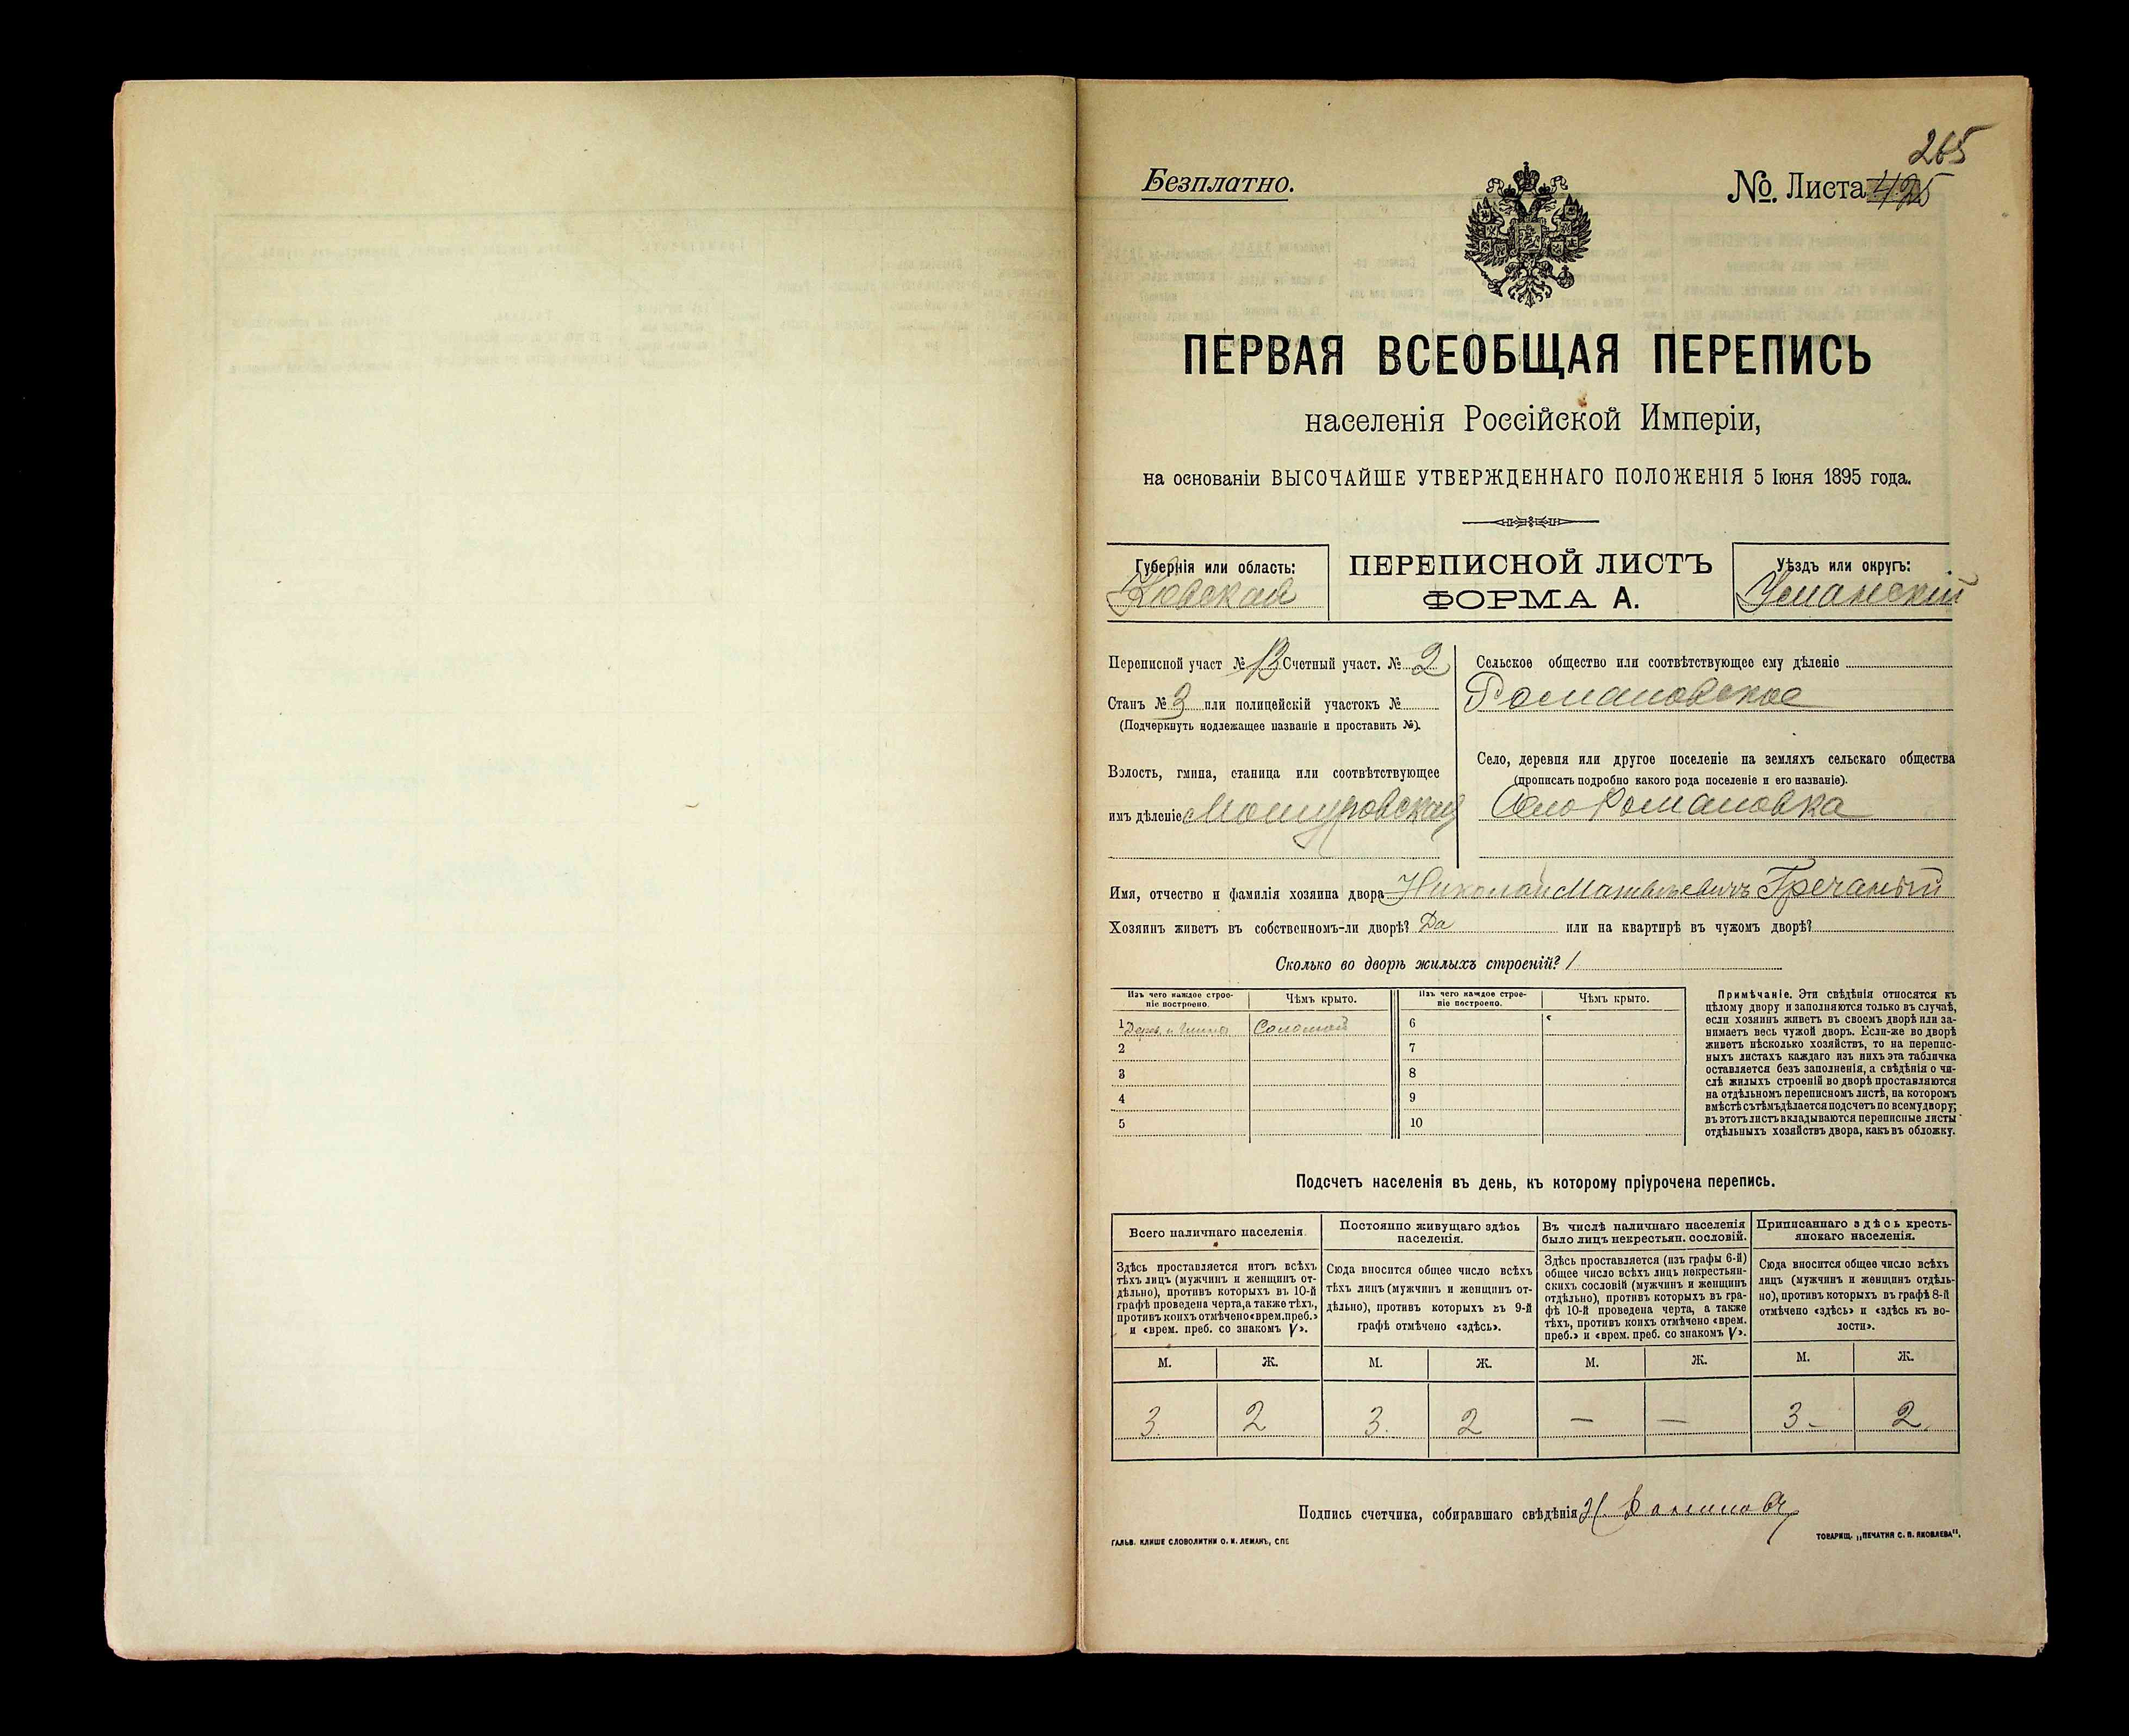 265
Безплатно.
№. Листа 425
ПЕРВАЯ ВСЕОБЩАЯ ПЕРЕПИСЬ
населенія Россійской Имперіи,
на основаніи ВЫСОЧАЙШЕ УТВЕРЖДЕННАГО ПОЛОЖЕНІЯ 5 Іюня 1895 года.
Губернія или область:
Кіевская
ПЕРЕПИСНОЙ ЛИСТЪ
ФОРМА А.
Уѣздъ или округъ:
Уманскій
Переписной участ № 13 Счетный участ. № 2
Станъ № 3 или полицейскій участокъ №
(Подчеркнуть подлежащее названіе и проставить №).
Волость, гмина, станица или соотвѣтствующее
имъ дѣленіе Мошуровская
Сельское общество или соотвѣтствующее ему дѣленіе
Романовское
Село, деревня или другое поселеніе на земляхъ сельскаго общества
(прописать подробно какого рода поселеніе и его названіе).
Село Романовка
Имя, отчество и фамилія хозяина двора Николай Матвѣевичъ Гречаный
Хозяинъ живетъ въ собственномъ-ли дворѣ? Да или на квартирѣ въ чужомъ дворѣ?
Сколько во дворѣ жилыхъ строеній? 1
Изъ чего каждое строе-
ніе построено.
Чѣмъ крыто.
Изъ чего каждое строе-
ніе построено.
Чѣмъ крыто.
1 Дерев. и глина Соломой 6
2 7
3 8
4 9
5 10
Примѣчаніе. Эти свѣдѣнія относятся къ
цѣлому двору и заполняются только въ случаѣ,
если хозяинъ живетъ въ своемъ дворѣ или за-
нимаетъ весь чужой дворъ. Если-же во дворѣ
живетъ нѣсколько хозяйствъ, то на перепис-
ныхъ листахъ каждаго изъ нихъ эта табличка
оставляется безъ заполненія, а свѣдѣнія о чи-
слѣ жилыхъ строеній во дворѣ проставляются
на отдѣльномъ переписномъ листѣ, на которомъ
вмѣстѣ съ тѣмъ дѣлается подсчетъ по всему двору;
въ этотъ листъ вкладываются переписные листы
отдѣльныхъ хозяйствъ двора, какъ въ обложку.
Подсчетъ населенія въ день, къ которому пріурочена перепись.
Всего наличнаго населенія.
Здѣсь проставляется итогъ всѣхъ
тѣхъ лицъ (мужчинъ и женщинъ от-
дѣльно), противъ которыхъ въ 10-й
графѣ проведена черта, а также тѣхъ,
противъ коихъ отмѣчено «врем. преб.»
и «врем. преб. со знакомъ V».
Постоянно живущаго здѣсь
населенія.
Сюда вносится общее число всѣхъ
тѣхъ лицъ (мужчинъ и женщинъ от-
дѣльно), противъ которыхъ въ 9-й
графѣ отмѣчено «здѣсь».
Въ числѣ наличнаго населенія
было лицъ некрестьян. сословій.
Здѣсь проставляется (изъ графы 6-й)
общее число всѣхъ лицъ некрестьян-
скихъ сословій (мужчинъ и женщинъ
отдѣльно), противъ которыхъ въ гра-
фѣ 10-й проведена черта, а также
тѣхъ, противъ коихъ отмѣчено «врем.
преб.» и «врем. преб. со знакомъ V».
Приписаннаго здѣсь кресть-
янскаго населенія.
Сюда вносится общее число всѣхъ
лицъ (мужчинъ и женщинъ отдѣль-
но), противъ которыхъ въ графѣ 8-й
отмѣчено «здѣсь» и «здѣсь къ во-
лости».
М. Ж. М. Ж. М. Ж. М. Ж.
3. 2 3. 2 — — 3 - 2.
Подпись счетчика, собиравшаго свѣдѣнія Н.
ГАЛЬВ. КЛИШЕ СЛОВОЛИТНИ О. И. ЛЕМАНЪ, СПБ
ТОВАРИЩ. „ПЕЧАТНЯ С. П. ЯКОВЛЕВА“.